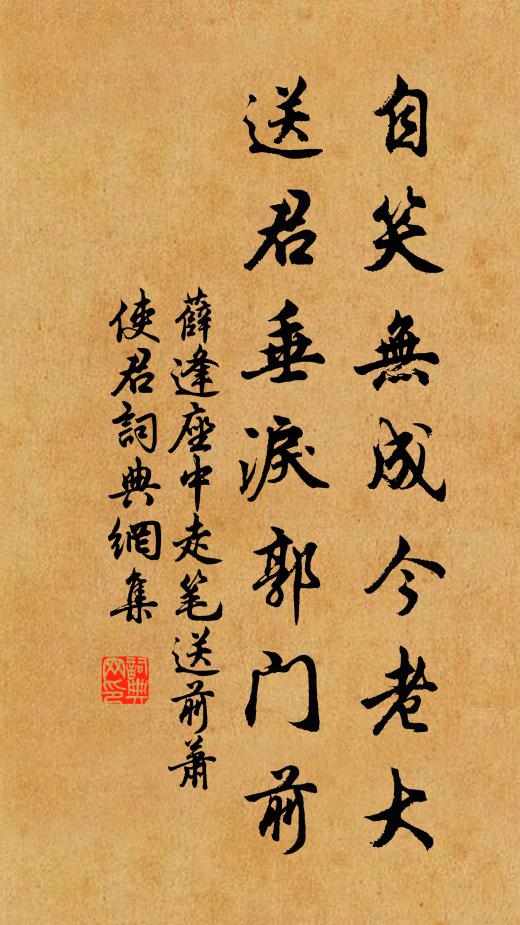 自笑無成今老大
送君垂淚郭門前
薛逢座中走笔送前萧
使君詞典網集
詞典网印